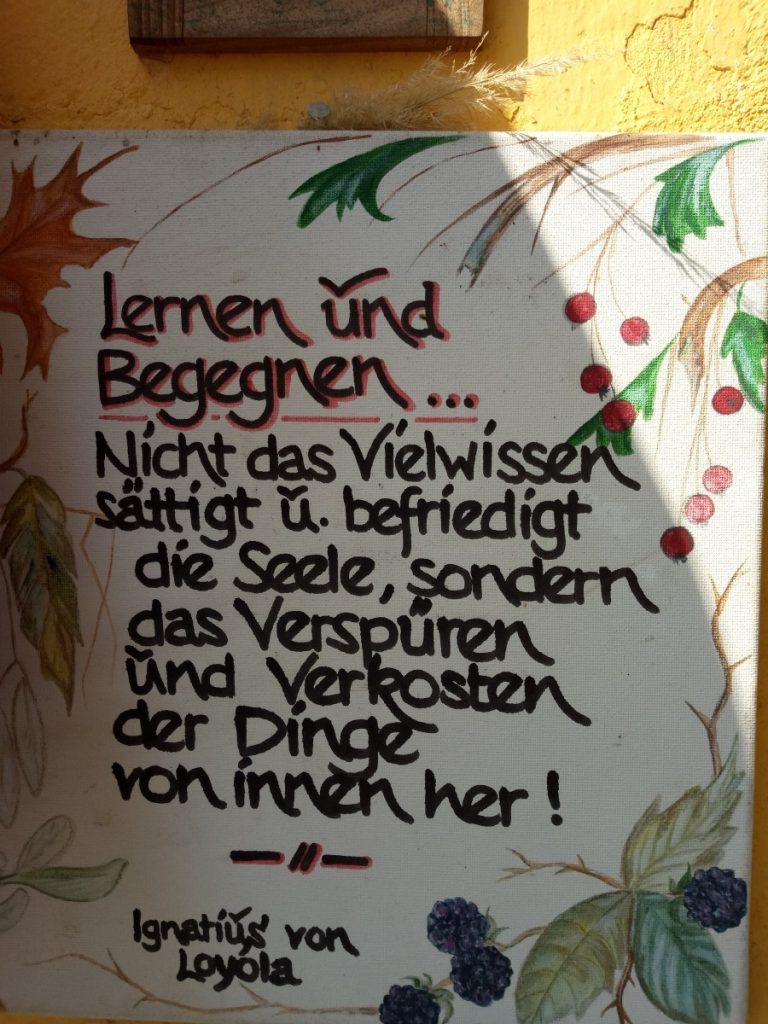 Lernen und
Begegnen ...
Nicht das Vielwissen
sättigt u. befriedigt
die Seele, sondern
das Verspüren
und Verkosten
der Dinge
von innen her !
Ignatius von
Loyola